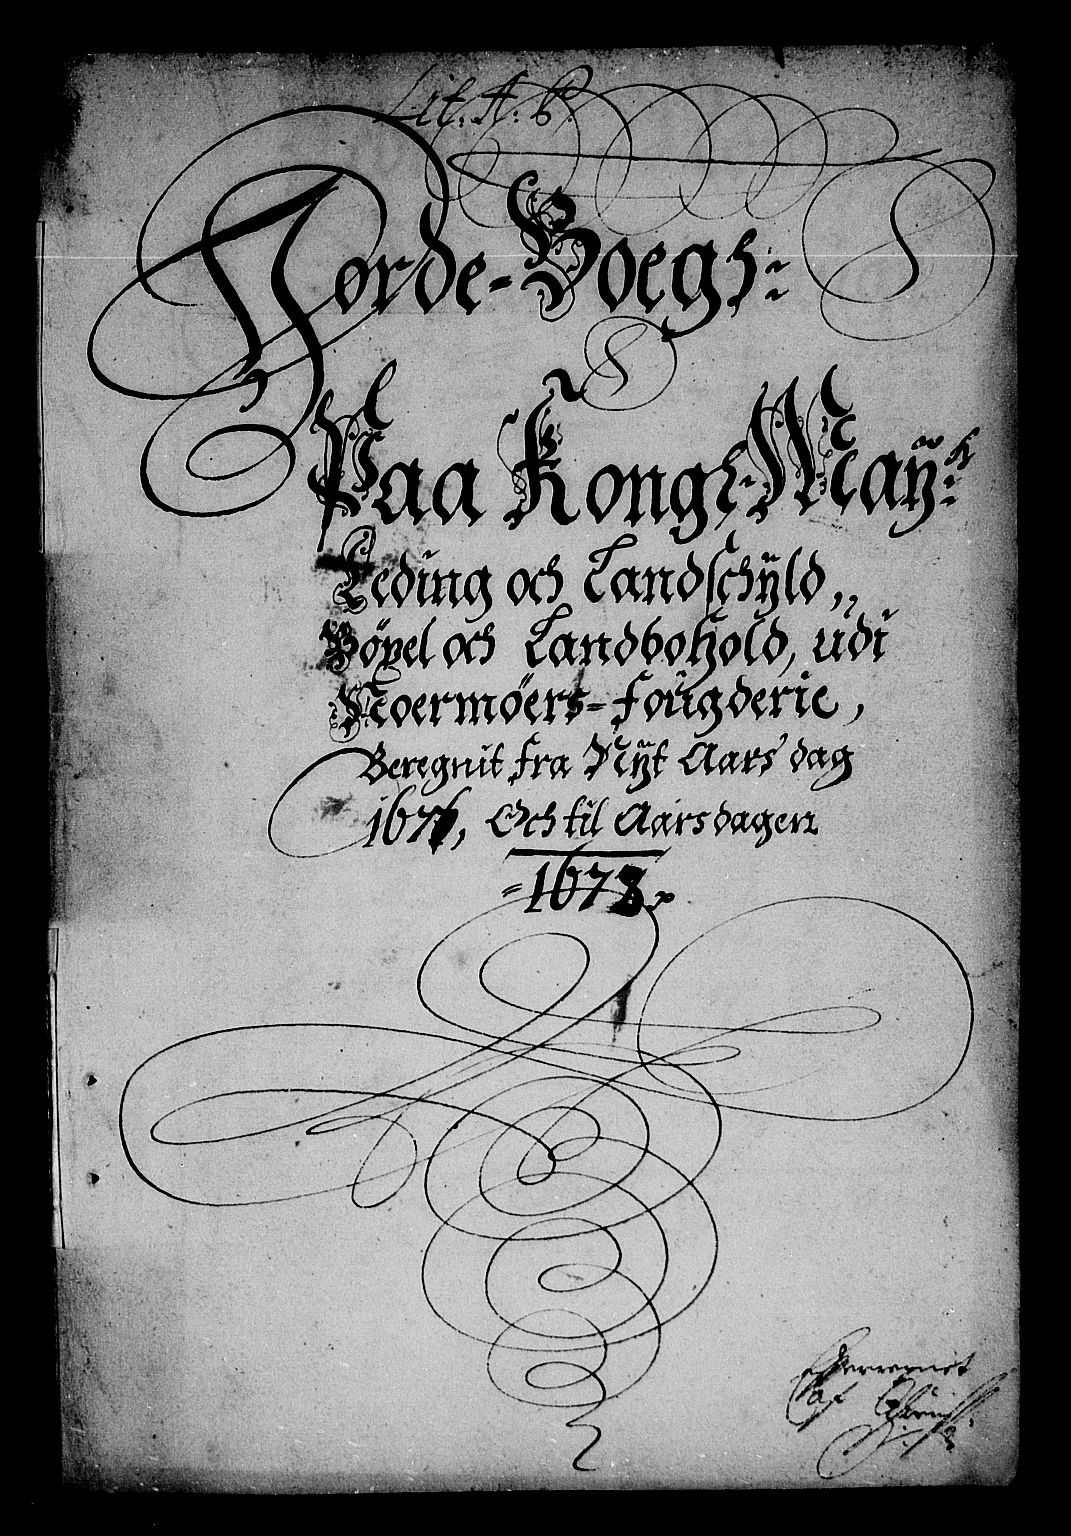 Lit: A: B.
Jorde-Boegs:
Paa Kongl: Maÿ:ts
Leding och Landschÿld,,
Böxel och Landbohold, udi
Noermöers-Fougderie,
Beregnit fra Nÿt Aars dag
1676, Och til Aarsdagen
=1673.
af